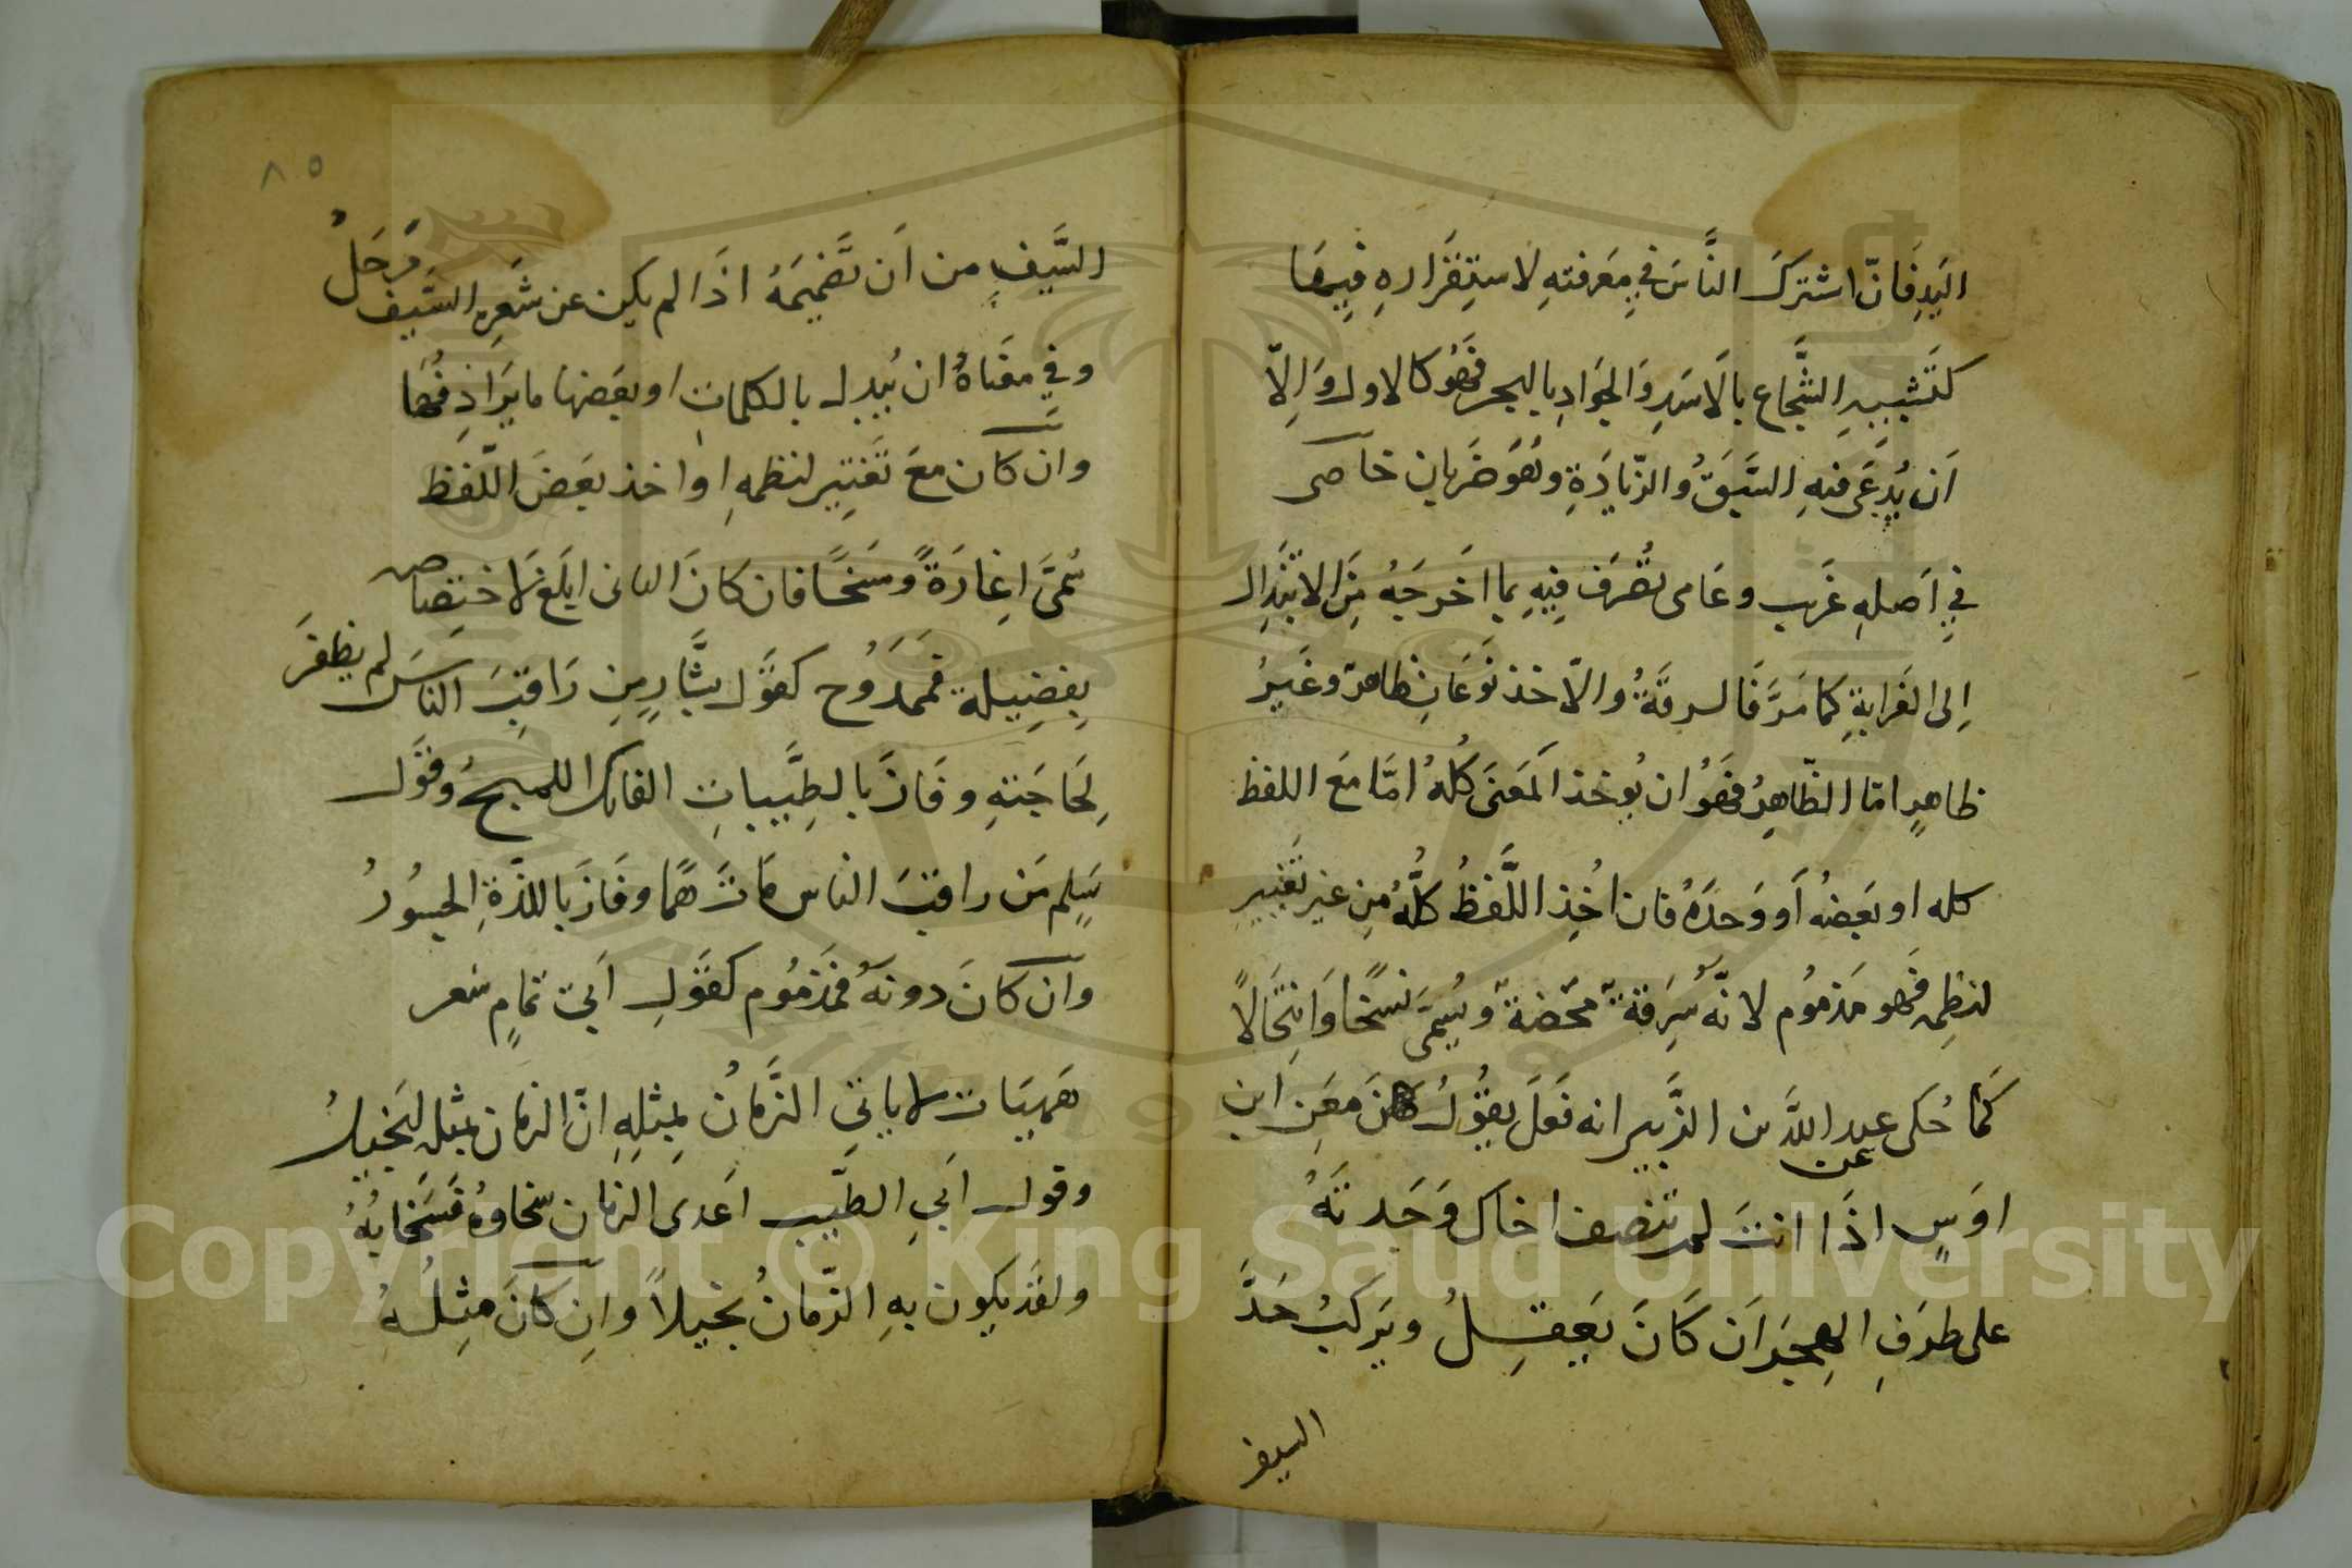 اليَدِ فَانّ اشتركَ النَّاسَ في مَعَرفتهِ لاستِقَرارهِ فِيهَا
كتَشبِيهِ الشّجَاع بالَاسَدِ وَالجَوَادِ بالبحر فَهُوَ كالاول وَاِلّا
اَن يُدعَى فيهِ السَّبَقُ والزّيادَةِ وهُوَ ضَربان خاصى
فِي اَصلهِ غَريب وعَامى تصُرَف فِيهِ بما اَخرجَهُ مِنَ الابتذال
اِلى الغَرابةِ كما مَرَّ فَالسرقَةُ والاخذ نَوعَانِ ظاهرٌ وغَيرُ
ظاهرٍ امّا الظّاهِرُ فَهوُ ان يُوخذ المَعَنىَ كُلهُ امّا مَعَ اللفظ
كله او بَعضهُ اَو وَحدَهُ فان اُخِذ اللَّفظُ كلُّهُ مِن غير تَغَييرِ
لنظِمه فَهو مَذموُم لانّهُ سَرِقةٌ محّضَةٌ وَيُسَمىَّ نَسخًا وَانتِحَالاً
كَمَا حُكى عن عبد اللَّه بن الزَّبير انه فَعَلَ بِقوُل مَعَن ابن
اوَسٍ اذَا انتَ لم تنصف اخاك وَجَدتَهُ
على طرَفِ الهِجرَان كَانَ يَعقِلُ ويَركبُ حَدَّ
السيف
٨٥
السَّيَفِ من اَن تَضَيمَهُ اذَا لم يكن عن شَفَرِة السَّيف مَزحَلُ
وفي معَناهُ ان يُبدل بالكلمات او بعَضها ما يَرادِفُهَا
وان كان مَعَ تَغيَير لنظمهِ او اخذ بعَضَ اللّفظ
سُمىَّ اغِارَةً ومَسَخًا فان كَانَ الثانى ابلَغ لاختِصَاصه
بِفضِيلة فمَمدَوُح كقَول بشَّارٍ مِن رَاقبَ النَّاسَ لم يظفَر
بِحَاجَتهِ وفَازَ بالطِيَّبباتِ الفاتك اللهجُ وقَول
سَلم مَن راقبَ الناس مَاتَ هَمًا وفَازَ باللذَّةِ الجسُورُ
وان كانَ دونَهُ فمَذموُم كقَولِ اَبي تمامٍ شعر
هَيهَات لا ياتيِ الزَّمانُ بمِثلِهِ انّ الزمان بمثله لبَخيلُ
وقول اَبيِ الطَّيب اَعَدى الزمان سخاوهُ فَسَخابهُ
ولقَد يكون بهِ الزّمانُ بخيلاً وان كانَ مثِلُهُ